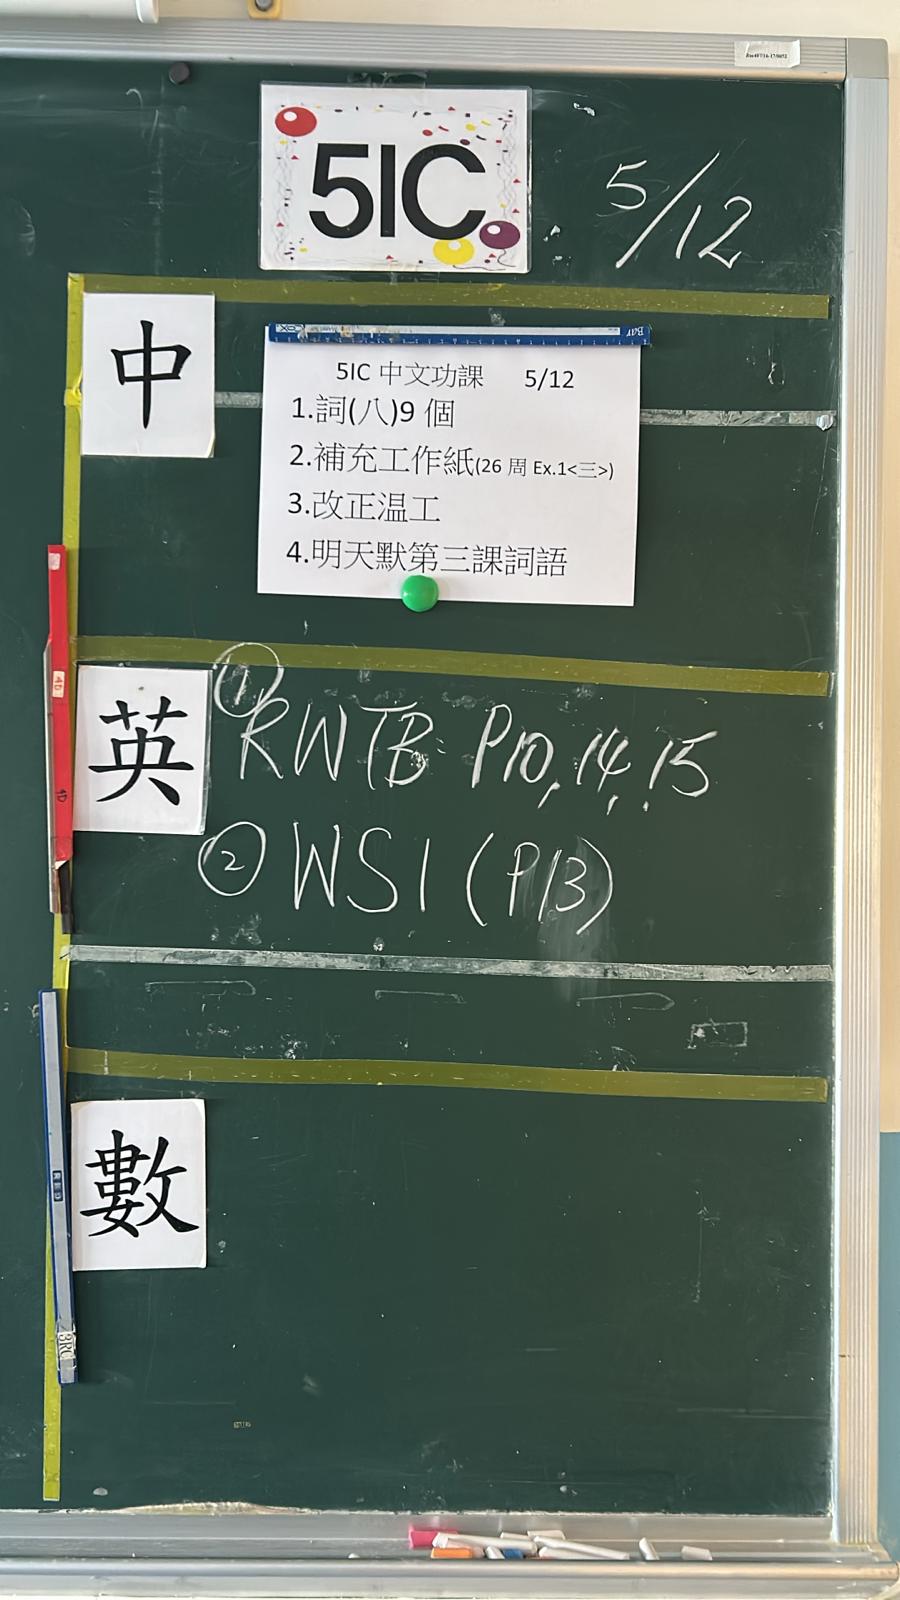 5IC
5/12
中
5IC 中文功課 5/12
1.詞(八)9 個
2.補充工作紙(26 周 Ex.1<三>)
3.改正温工
4.明天默第三課詞語
英
① RWTB P10, 14, 15
② WS1 (P13)
數